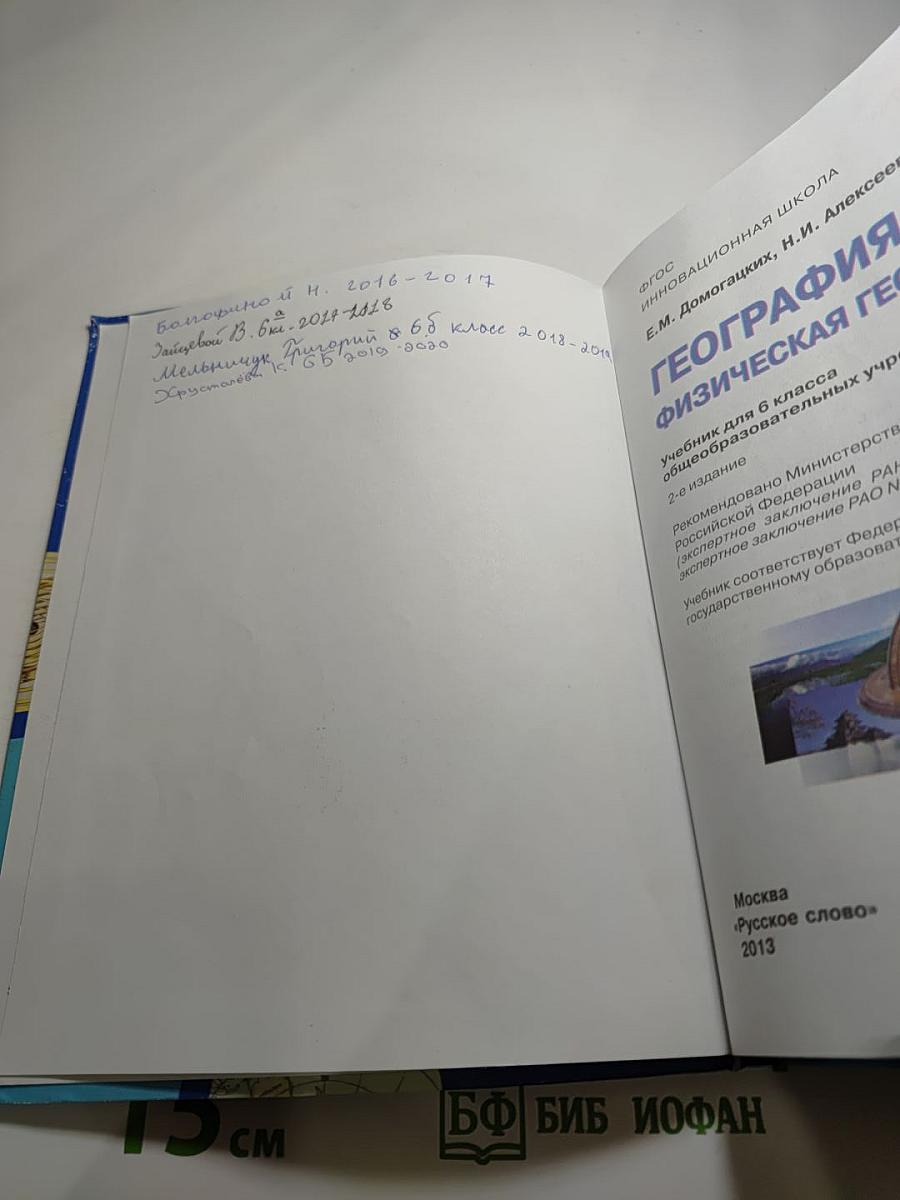 Болофиной Н. 2016-2017
Зайцевой В. 6а кл. 2017-2018
Мельничук Григорий 6б класс 2018-2019
Хрусталёва К. 6Б 2019-2020
ФГОС
ИННОВАЦИОННАЯ ШКОЛА
Е.М. Домогацких, Н.И. Алексеев
ГЕОГРАФИЯ
ФИЗИЧЕСКАЯ ГЕО
Учебник для 6 класса
общеобразовательных учре
2-е издание
Рекомендовано Министерств
Российской Федерации
(экспертное заключение РАН
экспертное заключение РАО N
Учебник соответствует Федер
государственному образоват
Москва
«Русское слово»
2013
15 см
БФ БИБ ИОФАН